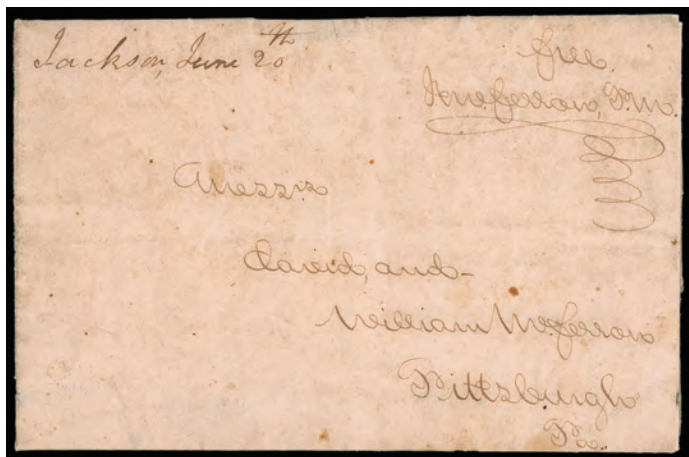 Jackson, June 20th
free.
McFerron, P.M.
Messrs
David, and-
William McFerron
Pittsburgh
Pa.